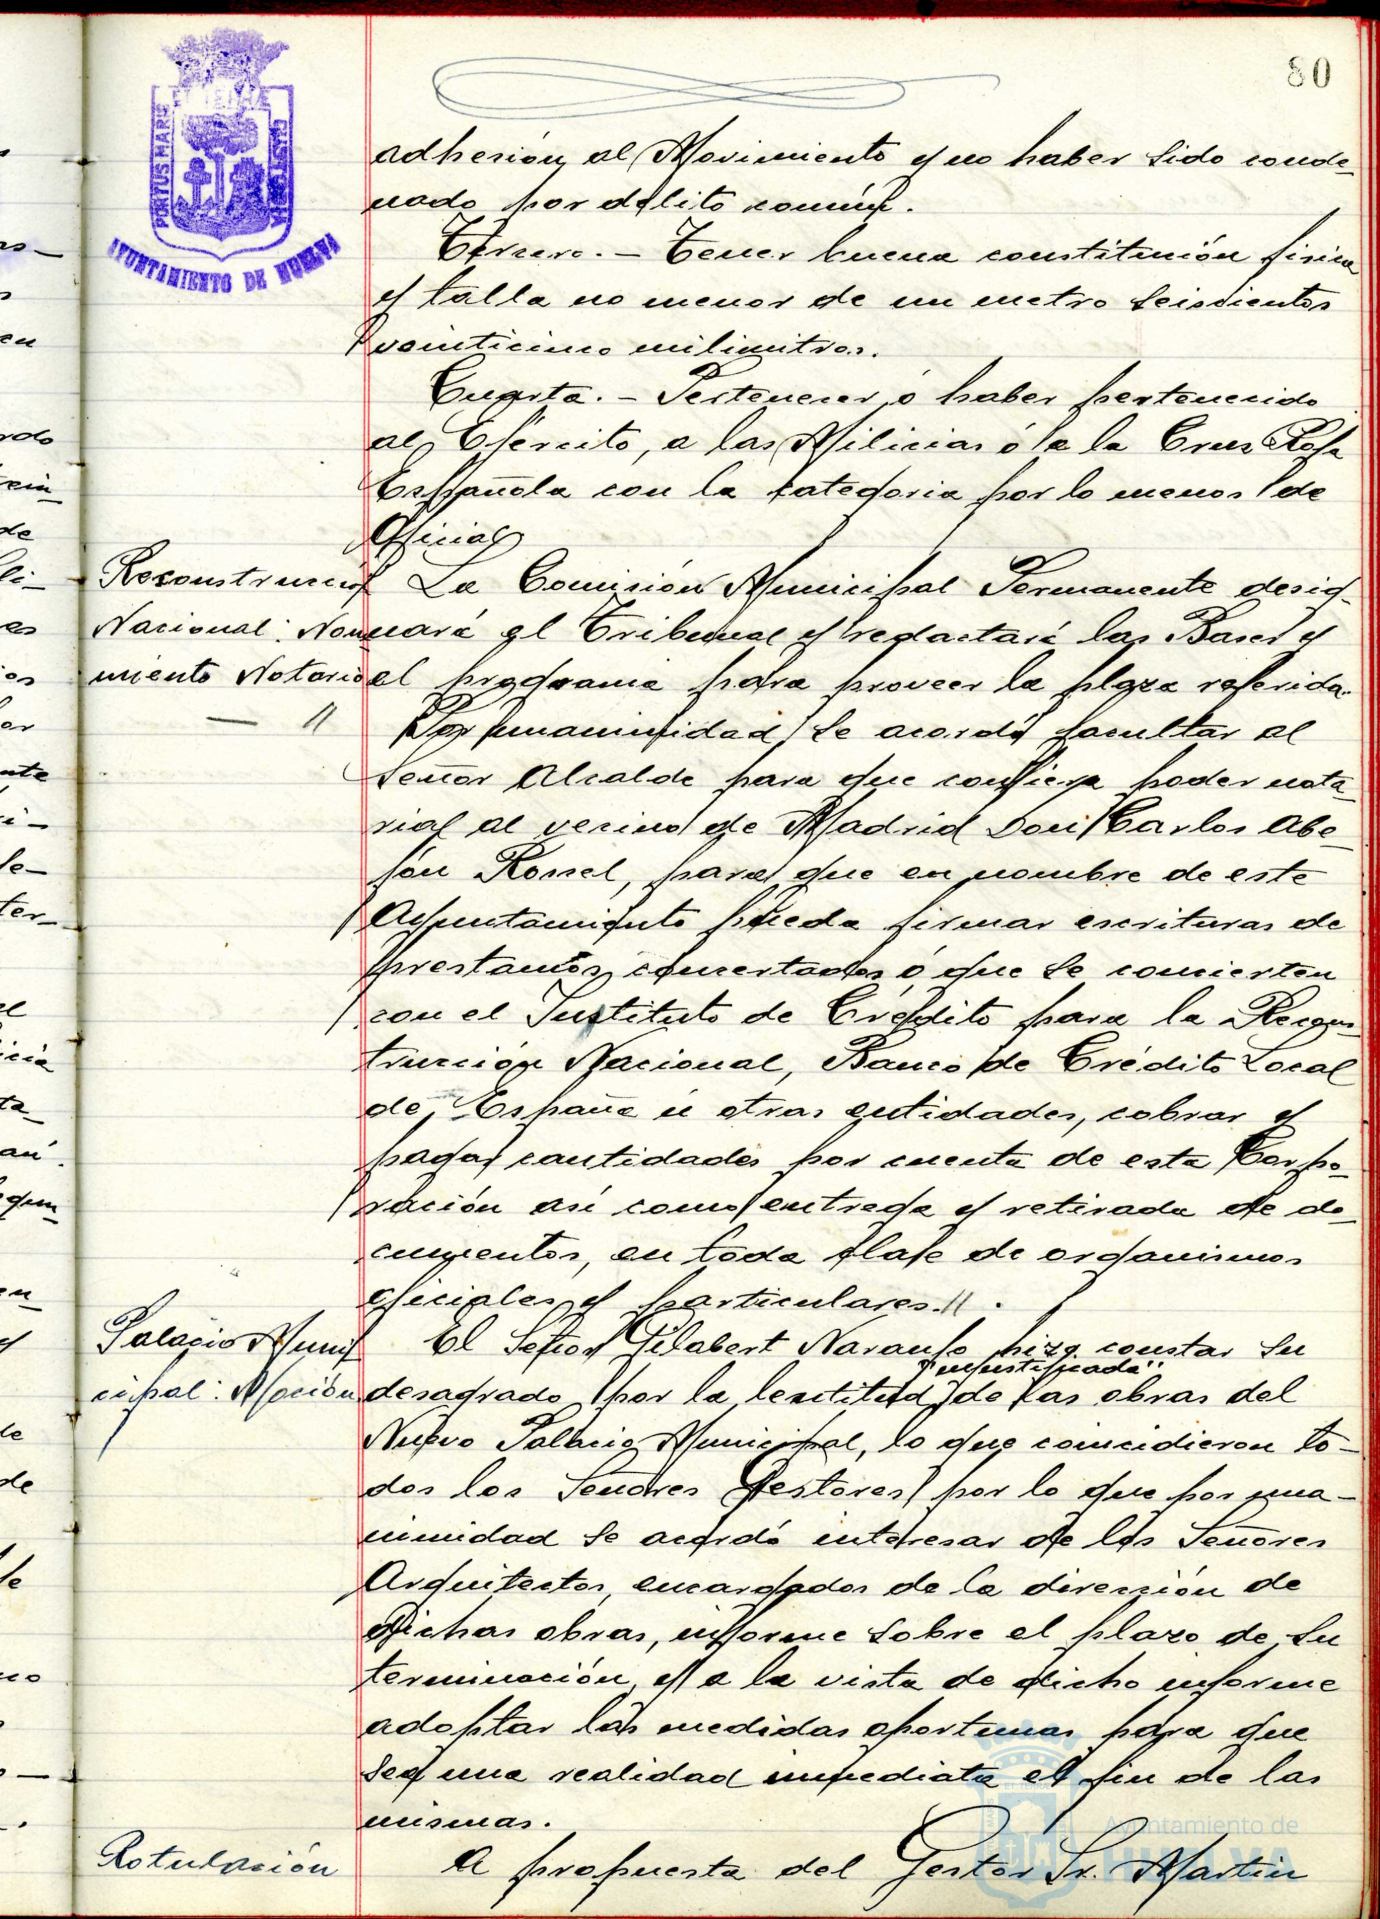 80
PORTUS MARIS ET TERRÆ CUSTODIA
AYUNTAMIENTO DE HUELVA
adhesión al Movimiento y no haber sido conde-
nado por delito común.
Tercero. - Tener buena constitución fisica
y talla no menor de un metro seiscientos
veinticinco milimitros.
Cuarta. - Pertenecer ó haber pertenecido
al Ejército, a las Milicias ó a la Cruz Roja
Española con la categoria por lo menos de
Oficial
Reconstrucción
Nacional: Nom
miento Notario
— "
La Comisión Municipal Permanente desig-
nará el Tribunal y redactará las Bases y
el programa para proveer la plaza referida.
Por unanimidad se acordó facultar al
Señor Alcalde para que confiera poder nota-
rial al vecino de Madrid Don Carlos Abe-
jón Rossel, para que en nombre de este
Ayuntamiento pueda firmar escrituras de
prestamos concertados ó que se concierten
con el Instituto de Crédito para la Recons-
trucción Nacional, Banco de Crédito Local
de España ú otras entidades, cobrar y
pagar cantidades por cuenta de esta Corpo-
ración así como entrega y retirada de do-
cumentos, en toda clase de organismos
oficiales y particulares. " .
Palacio Muni
cipal: Moción
El Señor Gilabert Naranjo hizo constar su
"injustificada"
desagrado por la lentitud de las obras del
Nuevo Palacio Municipal, lo que coincidieron to-
dos los Señores Gestores por lo que por una-
nimidad se acordó interesar de los Señores
Arquitectos, encargados de la dirección de
dichas obras, informe sobre el plazo de su
terminación, y a la vista de dicho informe
adoptar las medidas oportunas para que
sea una realidad inmediata el fin de las
mismas.
Rotulación
A propuesta del Gestor Sr. Martin
Ayuntamiento de
HUELVA